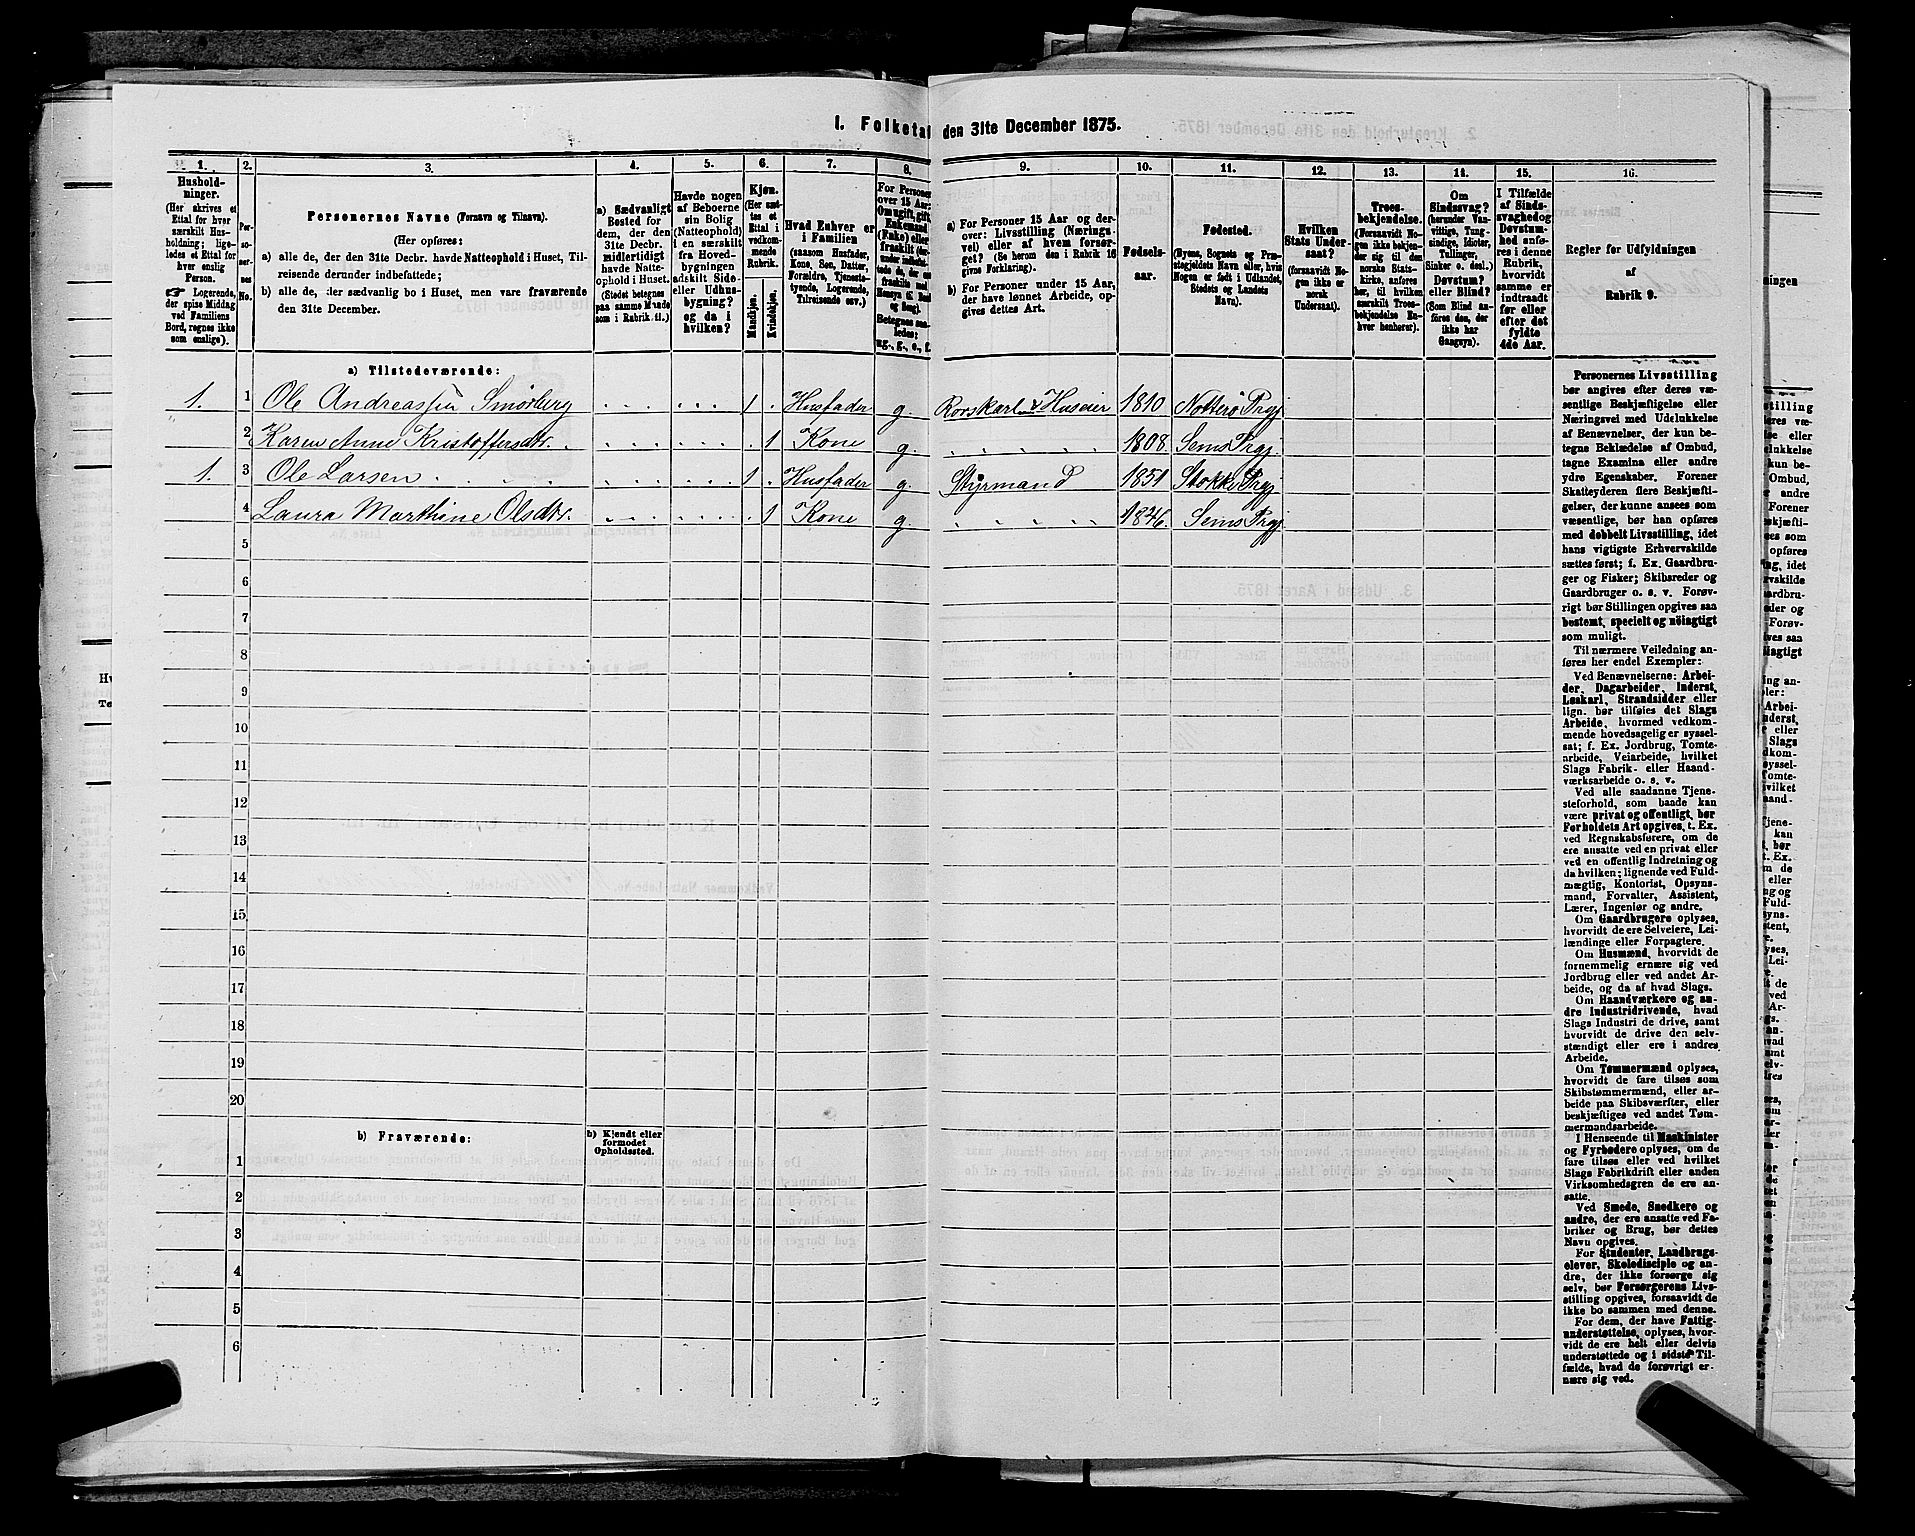 I. Folketal den 31te December 1875.
1. 2. 3. 4. 5. 6. 7. 8. 9. 10. 11. 12. 13. 14. 15. 16.
Hushold-
ninger.
(Her skrives et
Ettal for hver
særskilt Hus-
holdning; lige-
ledes et Ettal for
hver enslig
Person.
☞ Logerende,
der spise Middag
ved Familiens
Bord, regnes ikke
som enslige).
Per-
so-
ner-
nes
No.
Personernes Navne (Fornavn og Tilnavn).
(Her opføres:
a) alle de, der den 31te Decbr. havde Natteophold i Huset, Til-
reisende derunder indbefattede;
b) alle de, der sædvanlig bo i Huset, men vare fraværende
den 31te December.
a) Sædvanligt
Bosted for
dem, der den
31te Decbr.
midlertidigt
havde Natte-
ophold i Huset.
(Stedet betegnes
paa samme Maade
som i Rubrik 11.)
Havde nogen
af Beboerne
sin Bolig
(Natteophold)
i en særskilt
fra Hoved-
bygningen
adskilt Side-
eller Udhus-
bygning?
og da i
hvilken?
Kjøn.
(Her sæt-
tes et
Ettal i
vedkom-
mende
Rubrik.
Mandkjøn.
Kvindekjøn.
Hvad Enhver er
i Familien
(saasom Husfader,
Kone, Søn, Datter,
Forældre, Tjeneste-
tyende, Logerende,
Tilreisende osv.)
For Personer
over 15 Aar:
Om ugift, gift,
Enkemand
(Enke) eller
fraskilt
Betegnes saa-
ledes:
ug., g., e., f.
a) For Personer 15 Aar og der-
over: Livsstilling (Nærings-
vei) eller af hvem forsør-
get? (Se herom den i Rubrik 16
givne Forklaring).
b) For Personer under 15 Aar,
der have lønnet Arbeide, op-
gives dettes Art.
Fødsels-
aar.
Fødested.
(Byens, Sognets og Præ-
stegjeldets Navn eller, hvis
Nogen er født i Udlandet,
Stedets og Landets
Navn).
Hvilken
Stats Under-
saat?
(forsaavidt No-
gen ikke er
norsk
Undersaat).
Troes-
bekjendelse.
(Forsaavidt No-
gen ikke bekjen-
der sig til den
norske Stats-
kirke, anføres
her, til hvilken
særskilt Troes-
bekjendelse En-
hver henhører).
Om
Sindssvag?
(herunder Van-
vittige, Tung-
sindige, Idioter,
Tullinger,
Sinker o. desl.)
Døvstum?
eller Blind?
(Som Blind an-
føres den, der
ikke har
Gangsyn).
I Tilfælde
af Sinds-
svaghed og
Døvstum-
hed anfø-
res i denne
Rubrik,
hvorvidt
samme er
indtraadt
før eller
efter det
fyldte
4de Aar.
Regler før Udfyldningen
af
Rubrik 9.
a) Tilstedeværende:
1. 1 Ole Andreassen Smörberg 1 Husfader g. Rorskarl & Huseier 1810 Notterö Prgj
2 Karen Anne Kristoffersdtr. 1 Kone g. 1808. Sems Prgj.
1. 3 Ole Larsen 1 Husfader g. Styrmand 1851 Stokke Prgj
4 Laura Marthine Olsdtr. 1 Kone g. 1846. Sems Prgj.
5
6
7
8
9
10
11
12
13
14
15
16
17
18
19
20
b) Fraværende:
b) Kjendt eller
formodet
Opholdssted.
1
2
3
4
5
6
Personernes Livsstilling
bør angives efter deres væ-
sentlige Beskjæftigelse eller
Næringsvei med Udelukkelse
af Benævnelser, der kun be-
tegne Beklædelse af Ombud,
tagne Examina eller andre
ydre Egenskaber. Forener
Skatteyderen flere Beskjæfti-
gelser, der kunne ansees som
væsentlige, bør han opføres
med dobbelt Livsstilling, idet
hans vigtigste Erhvervskilde
sættes først; f. Ex. Gaardbru-
ger og Fisker; Skibsreder og
Gaardbruger o. s. v. Forøv-
rigt bør Stillingen opgives saa
bestemt, specielt og nöiagtigt
som muligt.
Til nærmere Veiledning an-
føres her endel Exempler:
Ved Benævnelserne: Arbei-
der, Dagarbeider, Inderst,
Løskarl, Strandsidder eller
lign. bør tilføies det Slags
Arbeide, hvormed vedkom-
mende hovedsagelig er syssel-
sat; f. Ex. Jordbrug, Tomte-
arbeide, Veiarbeide, hvilket
Slags Fabrik- eller Haand-
værksarbeide o. s. v.
Ved alle saadanne Tjene-
steforhold, som baade kan
være privat og offentligt, bør
Forholdets Art opgives, t. Ex.
ved Regnskabsførere, om de
ere ansatte ved en privat eller
ved en offentlig Indretning og
da hvilken; lignende ved Fuld-
mægtig, Kontorist, Opsyns-
mand, Forvalter, Assistent,
Lærer, Ingeniør og andre.
Om Gaardbrugere oplyses,
hvorvidt de ere Selveiere, Lei-
lændinge eller Forpagtere.
Om Husmænd, hvorvidt de
fornemmelig ernære sig ved
Jordbrug eller ved andet Ar-
beide, og da af hvad Slags.
Om Haandværkere og an-
dre Industridrivende, hvad
Slags Industri de drive, samt
hvorvidt de drive den selv-
stændigt eller ere i andres
Arbeide.
Om Tømmermænd oplyses,
hvorvidt de fare tilsøs som
Skibstømmermænd, eller ar-
beide paa Skibsværfter, eller
beskjæftiges ved andet Tøm-
mermandsarbeide.
I Henseende til Maskinister
og Fyrbødere oplyses, om de
fare tilsøs eller ved hvilket
Slags Fabrikdrift eller anden
Virksomhedsgren de ere an-
satte.
Ved Smede, Snedkere og
andre, der ere ansatte ved Fa-
briker og Brug, bør dettes
Navn opgives.
For Studenter, Landbrugs-
elever, Skoledisciple og an-
dre, der ikke forsørge sig
selv, bør Forsørgerens Livs-
stilling opgives, forsaavidt de
ikke bo sammen med denne.
For dem, der have Fattig-
understøttelse, oplyses, hvor-
vidt de ere helt eller delvis
understøttede og i sidste Til-
fælde, hvad de forøvrigt er-
nære sig ved.